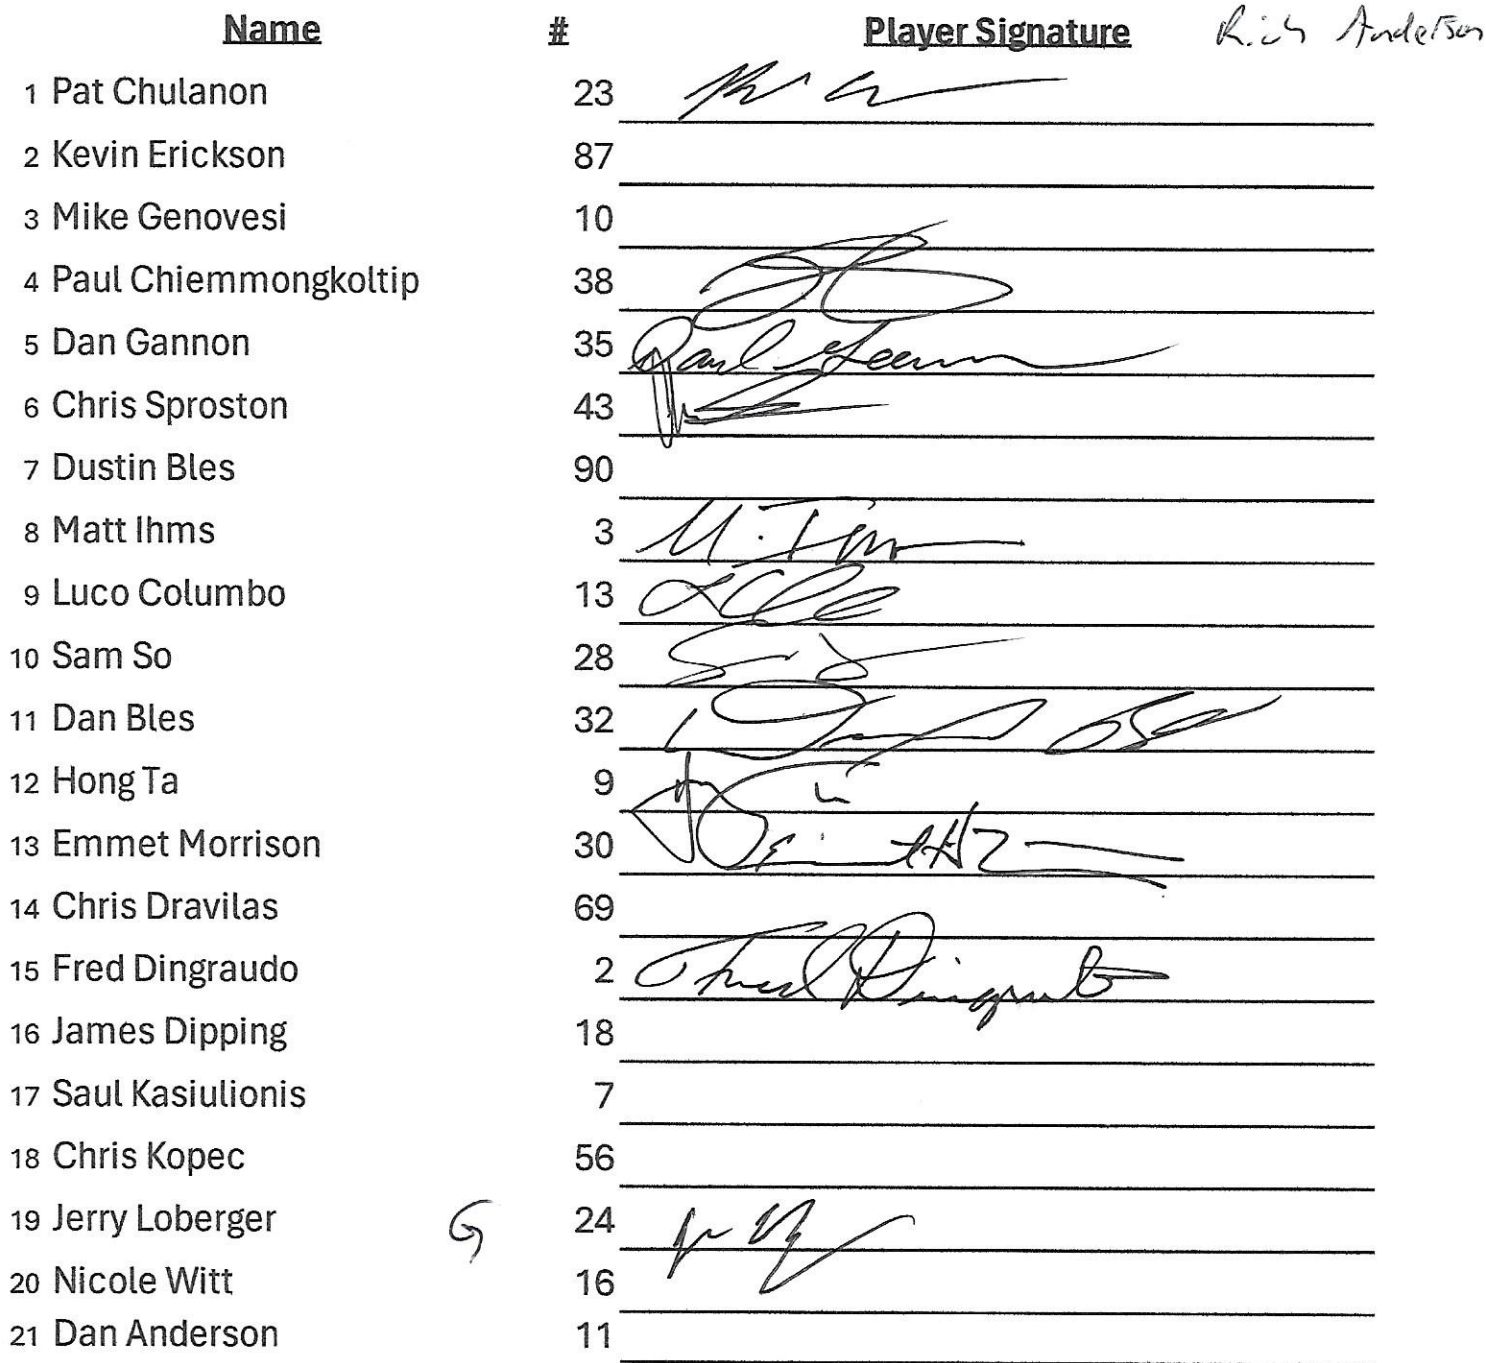 Name # Player Signature Rich Anderson
1 Pat Chulanon 23
2 Kevin Erickson 87
3 Mike Genovesi 10
4 Paul Chiemmongkoltip 38
5 Dan Gannon 35
6 Chris Sproston 43
7 Dustin Bles 90
8 Matt Ihms 3
9 Luco Columbo 13
10 Sam So 28
11 Dan Bles 32
12 Hong Ta 9
13 Emmet Morrison 30
14 Chris Dravilas 69
15 Fred Dingraudo 2
16 James Dipping 18
17 Saul Kasiulionis 7
18 Chris Kopec 56
19 Jerry Loberger G 24
20 Nicole Witt 16
21 Dan Anderson 11